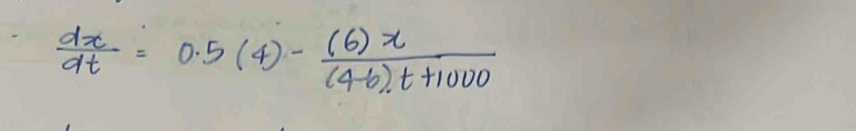 dx/dt = 0.5 (4) - (6) x / (4-6).t + 1000